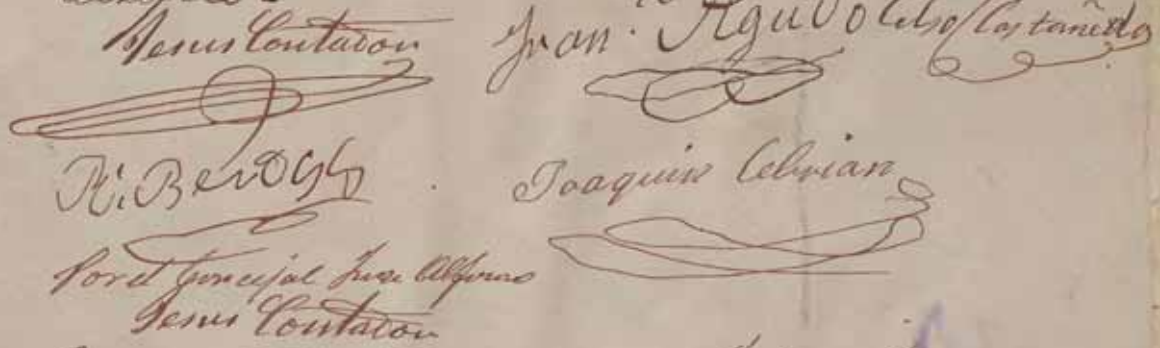 Jesus Contador Juan Agudo Celso Castañeda
Joaquin Cebrian
Por el Concejal Juan Alfonso
Jesus Contador